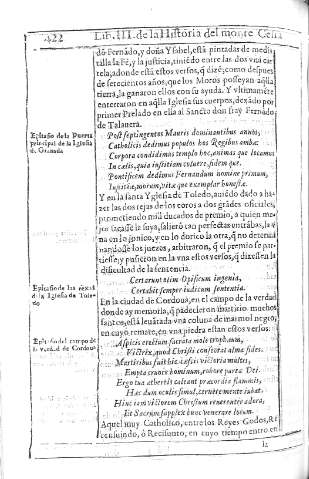 422 Lib. III. de la Historia del monte Celia
dō Fernādo, y doña Ysabel, está pintadas de media
talla la Fè, y la justicia, tiniēdo entre las dos vna car
tela, adonde está estos versos, q̄ dizē; como despues
de setecientos años, que los Moros posseyan aq̄lla
tierra, la ganaron ellos con su ayuda. Y vltimamēte
enterraron en aq̄lla Iglesia sus cuerpos, dexādo por
primer Prelado en ella al Sancto don fray Fernādo
de Talauera.
Epitafio de la Puerta
principal de la Iglesia
d. Granada
Post septingentos Mauris dominantibus annos,
Catholicis dedimus populos hos Regibus ambæ:
Corpora condidimus templo hoc, animas que locamus
In cælis, quia iustitiam coluere, fidem que.
Pontificem dedimus Fernandum nomine primum,
morum, vitæ que exemplar honestæ.
Y en la santa Yglesia de Toledo, auiēdo dado a ha-
zer las dos rejas de los coros a dos grādes oficiales,
prometiendo mil ducados de premio, a quien me-
jor sacasse la suya, salierō tan perfectas entrābas, la v
na en lo jonico, y en lo dorico la otra, q̄ no determi
nandose los juezes, arbitraron, q̄ el premio se par-
tiesse, y pusieron en la vna estos versos, q̄ dizesen la
dificultad de la sentencia.
Epitafio de las rexas
de la Iglesia de Tole-
do
Certarunt olim Opificum ingenia,
Certabit semper iudicum sententia.
En la ciudad de Cordoua, en el campo de la verdad
donde ay memoria, q̄ padecieron martirio muchos
santos, está leuātada vna coluna de marmol negro,
en cuyo remate, en vna piedra estan estos versos:
Epitafio del campo de
la verdad de Cordoua
Aspicis erectum sacrata mole trophæum,
Victrix, quod Christi consecrat alma fides.
Martiribus fuit hic cæsis victoria multis,
Empta cruore hominum, robore parta Dei.
Ergo tua æthereis caleant præcordia flammis,
Hac dum oculis simul, mente tuate
Hinc iam victorem Christum venerentur adora,
Et Sacrum supplex hunc venerare locum.
Aquel muy Catholico, entre los Reyes Godos, Re
censuindo, ó Recisunto, en cuyo tiempo entro en